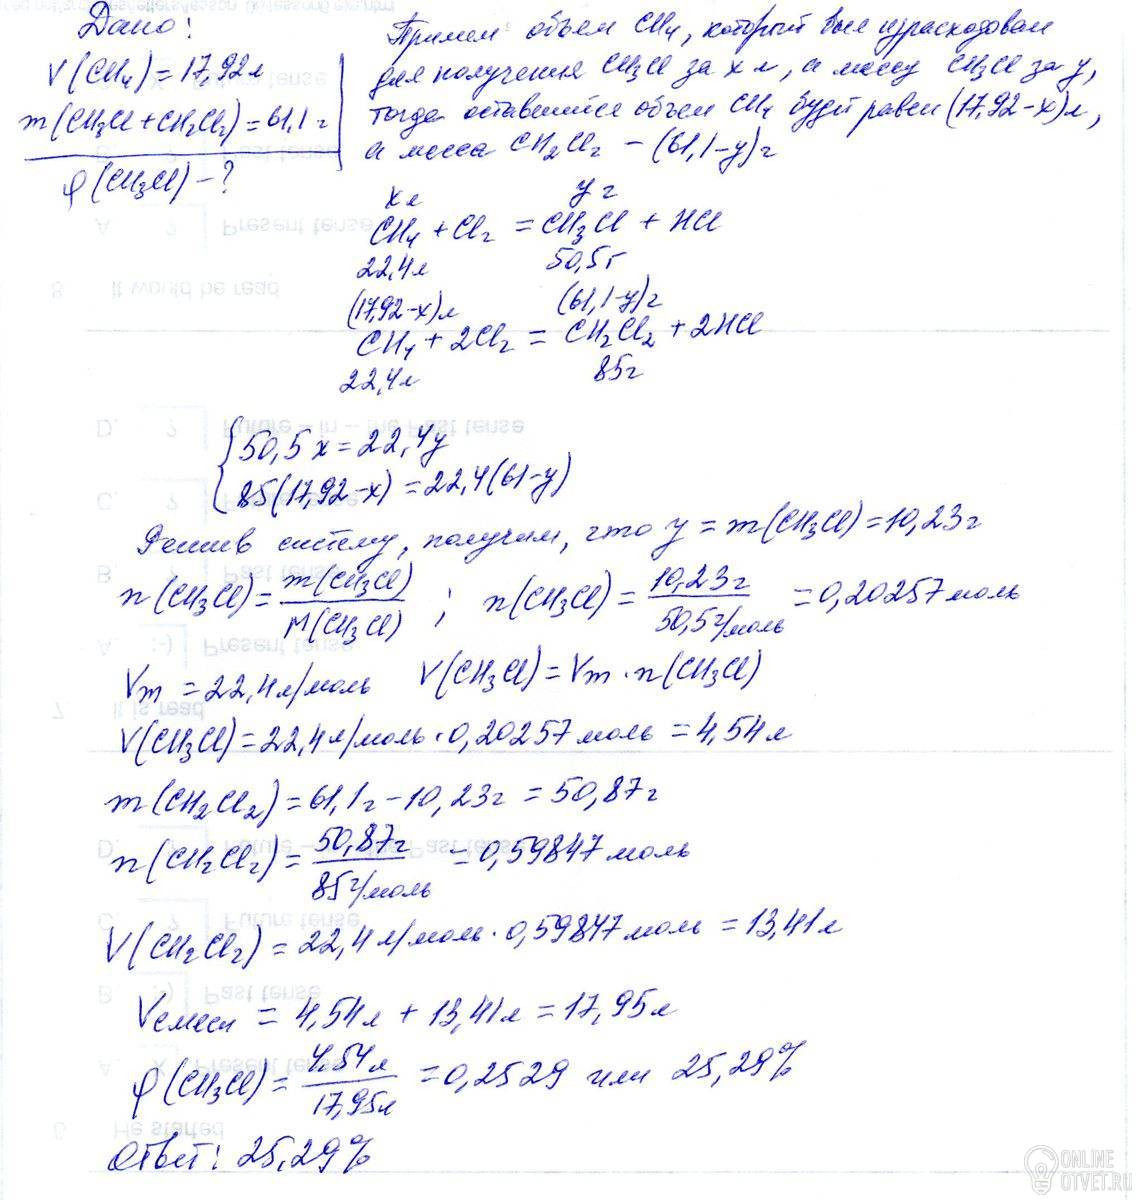 Дано:
V(CH₄)=17,92л
m(CH₃Cl+CH₂Cl₂)=61,1г
φ(CH₃Cl)-?
Примем объем CH₄, который был израсходован
для получения CH₃Cl за x л, а массу CH₃Cl за y,
тогда оставшийся объем CH₄ будет равен (17,92-x)л,
а масса CH₂Cl₂ - (61,1-y)г
xл yг
CH₄ + Cl₂ = CH₃Cl + HCl
22,4л 50,5г
(17,92-x)л (61,1-y)г
CH₄ + 2Cl₂ = CH₂Cl₂ + 2HCl
22,4л 85г
{50,5x=22,4y
85(17,92-x)=22,4(61-y)
Решив систему, получим, что y = m(CH₃Cl)=10,23г
n(CH₃Cl)= m(CH₃Cl)/M(CH₃Cl) ; n(CH₃Cl)= 10,23г/50,5г/моль =0,20257моль
Vm=22,4л/моль V(CH₃Cl)=Vm·n(CH₃Cl)
V(CH₃Cl)=22,4л/моль·0,20257моль=4,54л
m(CH₂Cl₂)=61,1г-10,23г=50,87г
n(CH₂Cl₂)= 50,87г/85г/моль =0,59847моль
V(CH₂Cl₂)=22,4л/моль·0,59847моль=13,41л
Vсмеси = 4,54л + 13,41л=17,95л
φ(CH₃Cl)= 4,54л/17,95л =0,2529 или 25,29%
Ответ: 25,29%
ONLINE
OTVET.RU